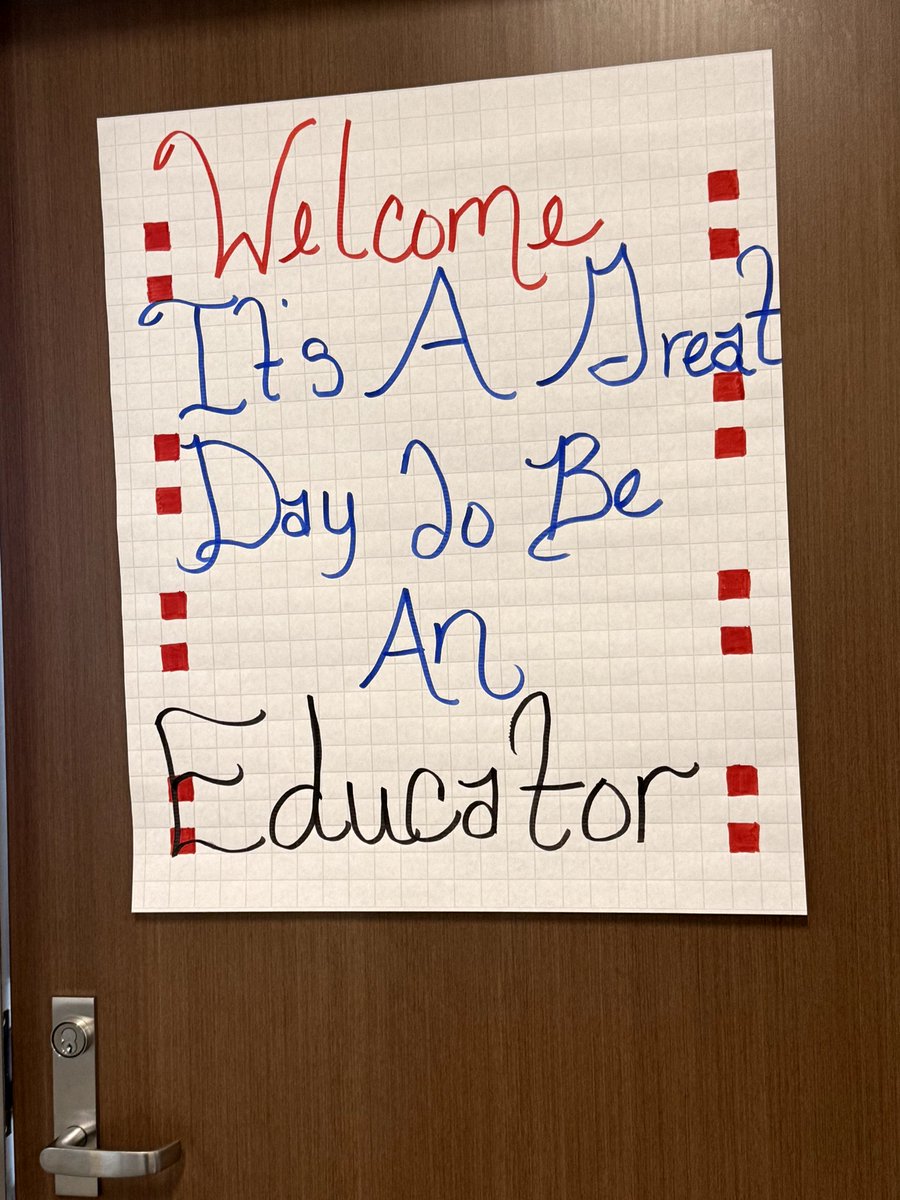 Welcome
It's A Great
Day To Be
An
Educator